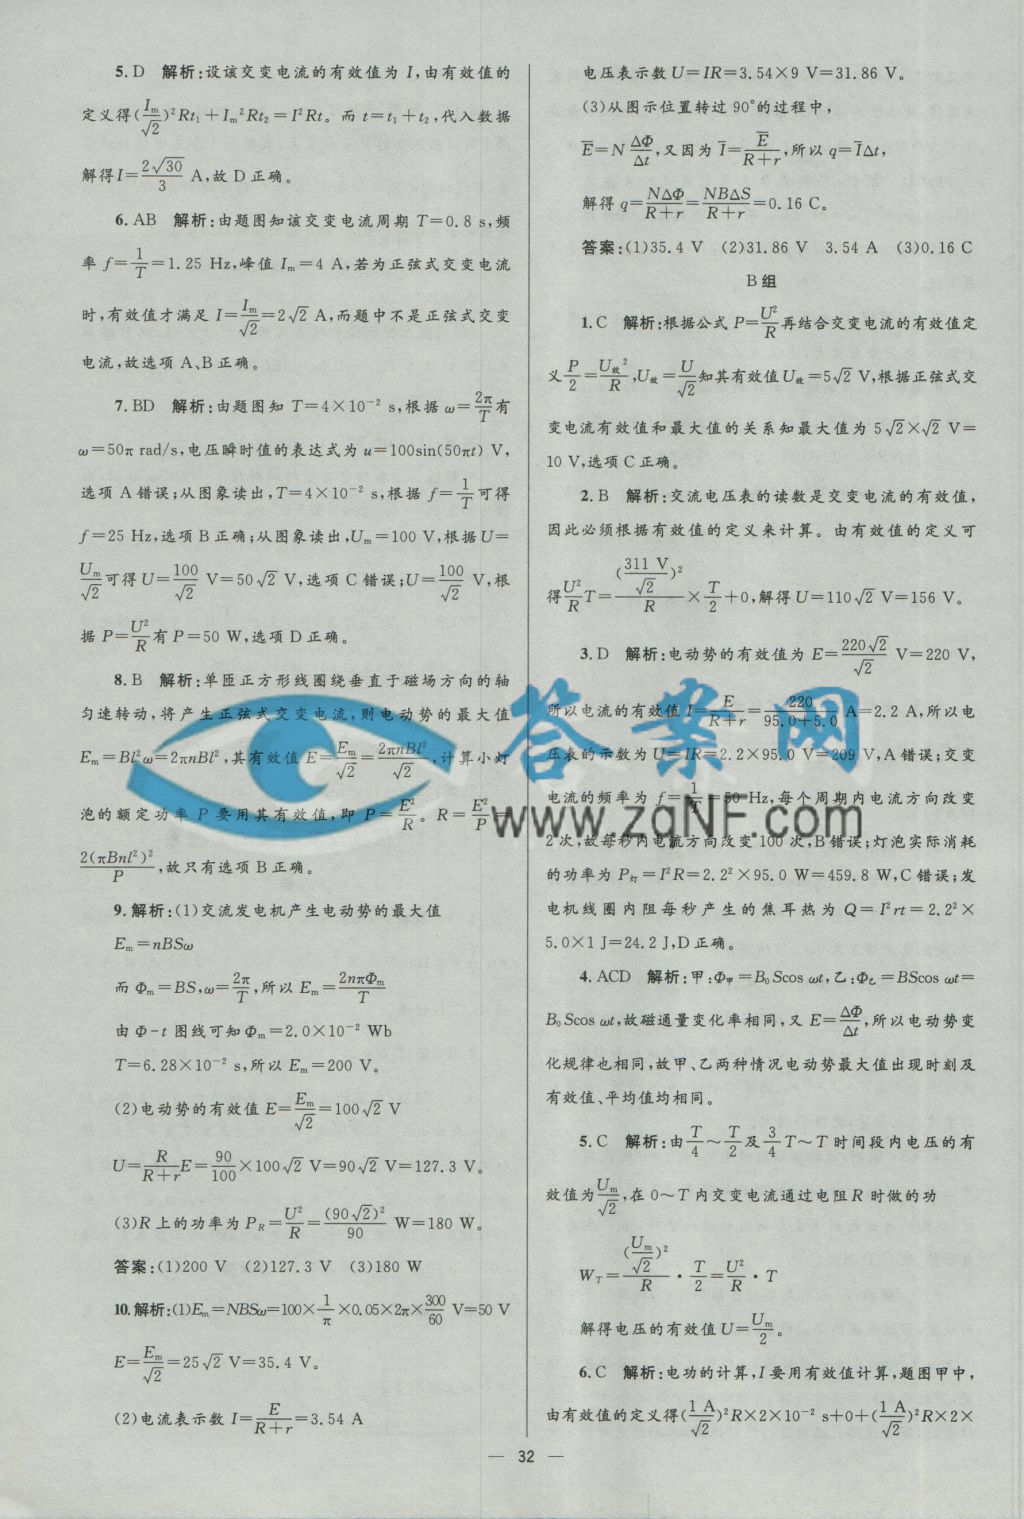 5. D 解析:设该交变电流的有效值为 I,由有效值的
定义得(Im/√2)²Rt₁+Im²Rt₂=I²Rt。而 t=t₁+t₂,代入数据
解得I=2√30/3 A,故 D 正确。
6. AB 解析:由题图知该交变电流周期 T=0.8 s,频
率 f=1/T=1.25 Hz,峰值 Im=4 A,若为正弦式交变电流
时,有效值才满足 I=Im/√2=2√2 A,而题中不是正弦式交变
电流,故选项 A、B 正确。
7. BD 解析:由题图知 T=4×10⁻² s,根据 ω=2π/T有
ω=50π rad/s,电压瞬时值的表达式为 u=100sin(50πt) V,
选项 A 错误;从图象读出,T=4×10⁻² s,根据 f=1/T可得
f=25 Hz,选项 B 正确;从图象读出,Um=100 V,根据U=
Um/√2可得 U=100/√2 V=50√2 V,选项 C 错误;U=100/√2 V,根
据 P=U²/R有 P=50 W,选项 D 正确。
8. B 解析:单匝正方形线圈绕垂直于磁场方向的轴
匀速转动,将产生正弦式交变电流,则电动势的最大值
Em=Bl²ω=2πnBl²,其有效值 E=Em/√2=2πnBl²/√2,计算小灯
泡的额定功率 P 要用其有效值,即 P=E²/R。R=E²/P=
2(πBnl²)²/P,故只有选项 B 正确。
9. 解析:(1)交流发电机产生电动势的最大值
Em=nBSω
而 Φm=BS,ω=2π/T,所以 Em=2nπΦm/T
由 Φ-t 图线可知 Φm=2.0×10⁻² Wb
T=6.28×10⁻² s,所以 Em=200 V。
(2)电动势的有效值 E=Em/√2=100√2 V
U=R/(R+r)E=90/100×100√2 V=90√2 V=127.3 V。
(3)R 上的功率为 PR=U²/R=(90√2)²/90 W=180 W。
答案:(1)200 V (2)127.3 V (3)180 W
10. 解析:(1)Em=NBSω=100×1/π×0.05×2π×300/60 V=50 V
E=Em/√2=25√2 V=35.4 V。
(2)电流表示数 I=E/(R+r)=3.54 A
电压表示数 U=IR=3.54×9 V=31.86 V。
(3)从图示位置转过 90°的过程中,
E̅=NΔΦ/Δt,又因为 I̅=E̅/(R+r),所以 q=I̅Δt,
解得 q=NΔΦ/(R+r)=NBΔS/(R+r)=0.16 C。
答案:(1)35.4 V (2)31.86 V 3.54 A (3)0.16 C
B 组
1. C 解析:根据公式 P=U²/R再结合交变电流的有效值定
义P/2=U效²/R,U效=U/√2知其有效值U效=5√2 V,根据正弦式交
变电流有效值和最大值的关系知最大值为 5√2×√2 V=
10 V,选项 C 正确。
2. B 解析:交流电压表的读数是交变电流的有效值,
因此必须根据有效值的定义来计算。由有效值的定义可
得U²/R T=(311 V/√2)²/R×T/2+0,解得 U=110√2 V=156 V。
3. D 解析:电动势的有效值为 E=220√2/√2 V=220 V,
所以电流的有效值 I=E/(R+r)=220/(95.0+5.0) A=2.2 A,所以电
压表的示数为 U=IR=2.2×95.0 V=209 V,A 错误;交变
电流的频率为 f=1/T=50 Hz,每个周期内电流方向改变
2 次,故每秒内电流方向改变 100 次,B 错误;灯泡实际消耗
的功率为 P灯=I²R=2.2²×95.0 W=459.8 W,C 错误;发
电机线圈内阻每秒产生的焦耳热为 Q=I²rt=2.2²×
5.0×1 J=24.2 J,D 正确。
4. ACD 解析:甲:Φ甲=B₀Scos ωt,乙:Φ乙=BScos ωt=
B₀Scos ωt,故磁通量变化率相同,又 E=ΔΦ/Δt,所以电动势变
化规律也相同,故甲、乙两种情况电动势最大值出现时刻及
有效值、平均值均相同。
5. C 解析:由T/4~T/2及3/4T~T 时间段内电压的有
效值为Um/√2,在 0~T 内交变电流通过电阻 R 时做的功
W_T=(Um/√2)²/R·T/2=U²/R·T
解得电压的有效值 U=Um/2。
6. C 解析:电功的计算,I 要用有效值计算,题图甲中,
由有效值的定义得(1 A/√2)²R×2×10⁻² s+0+(1 A/√2)²R×2×
— 32 —
答案网
www.zqNF.com